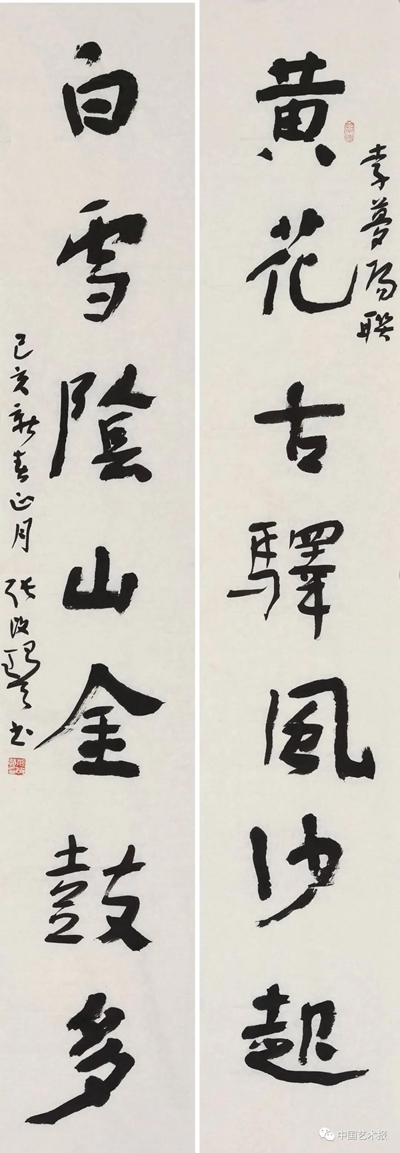 李夢陽聯
黄花古驛風沙起
白雪陰山金鼓多
己亥新春正月 張改琴书
中国艺术报